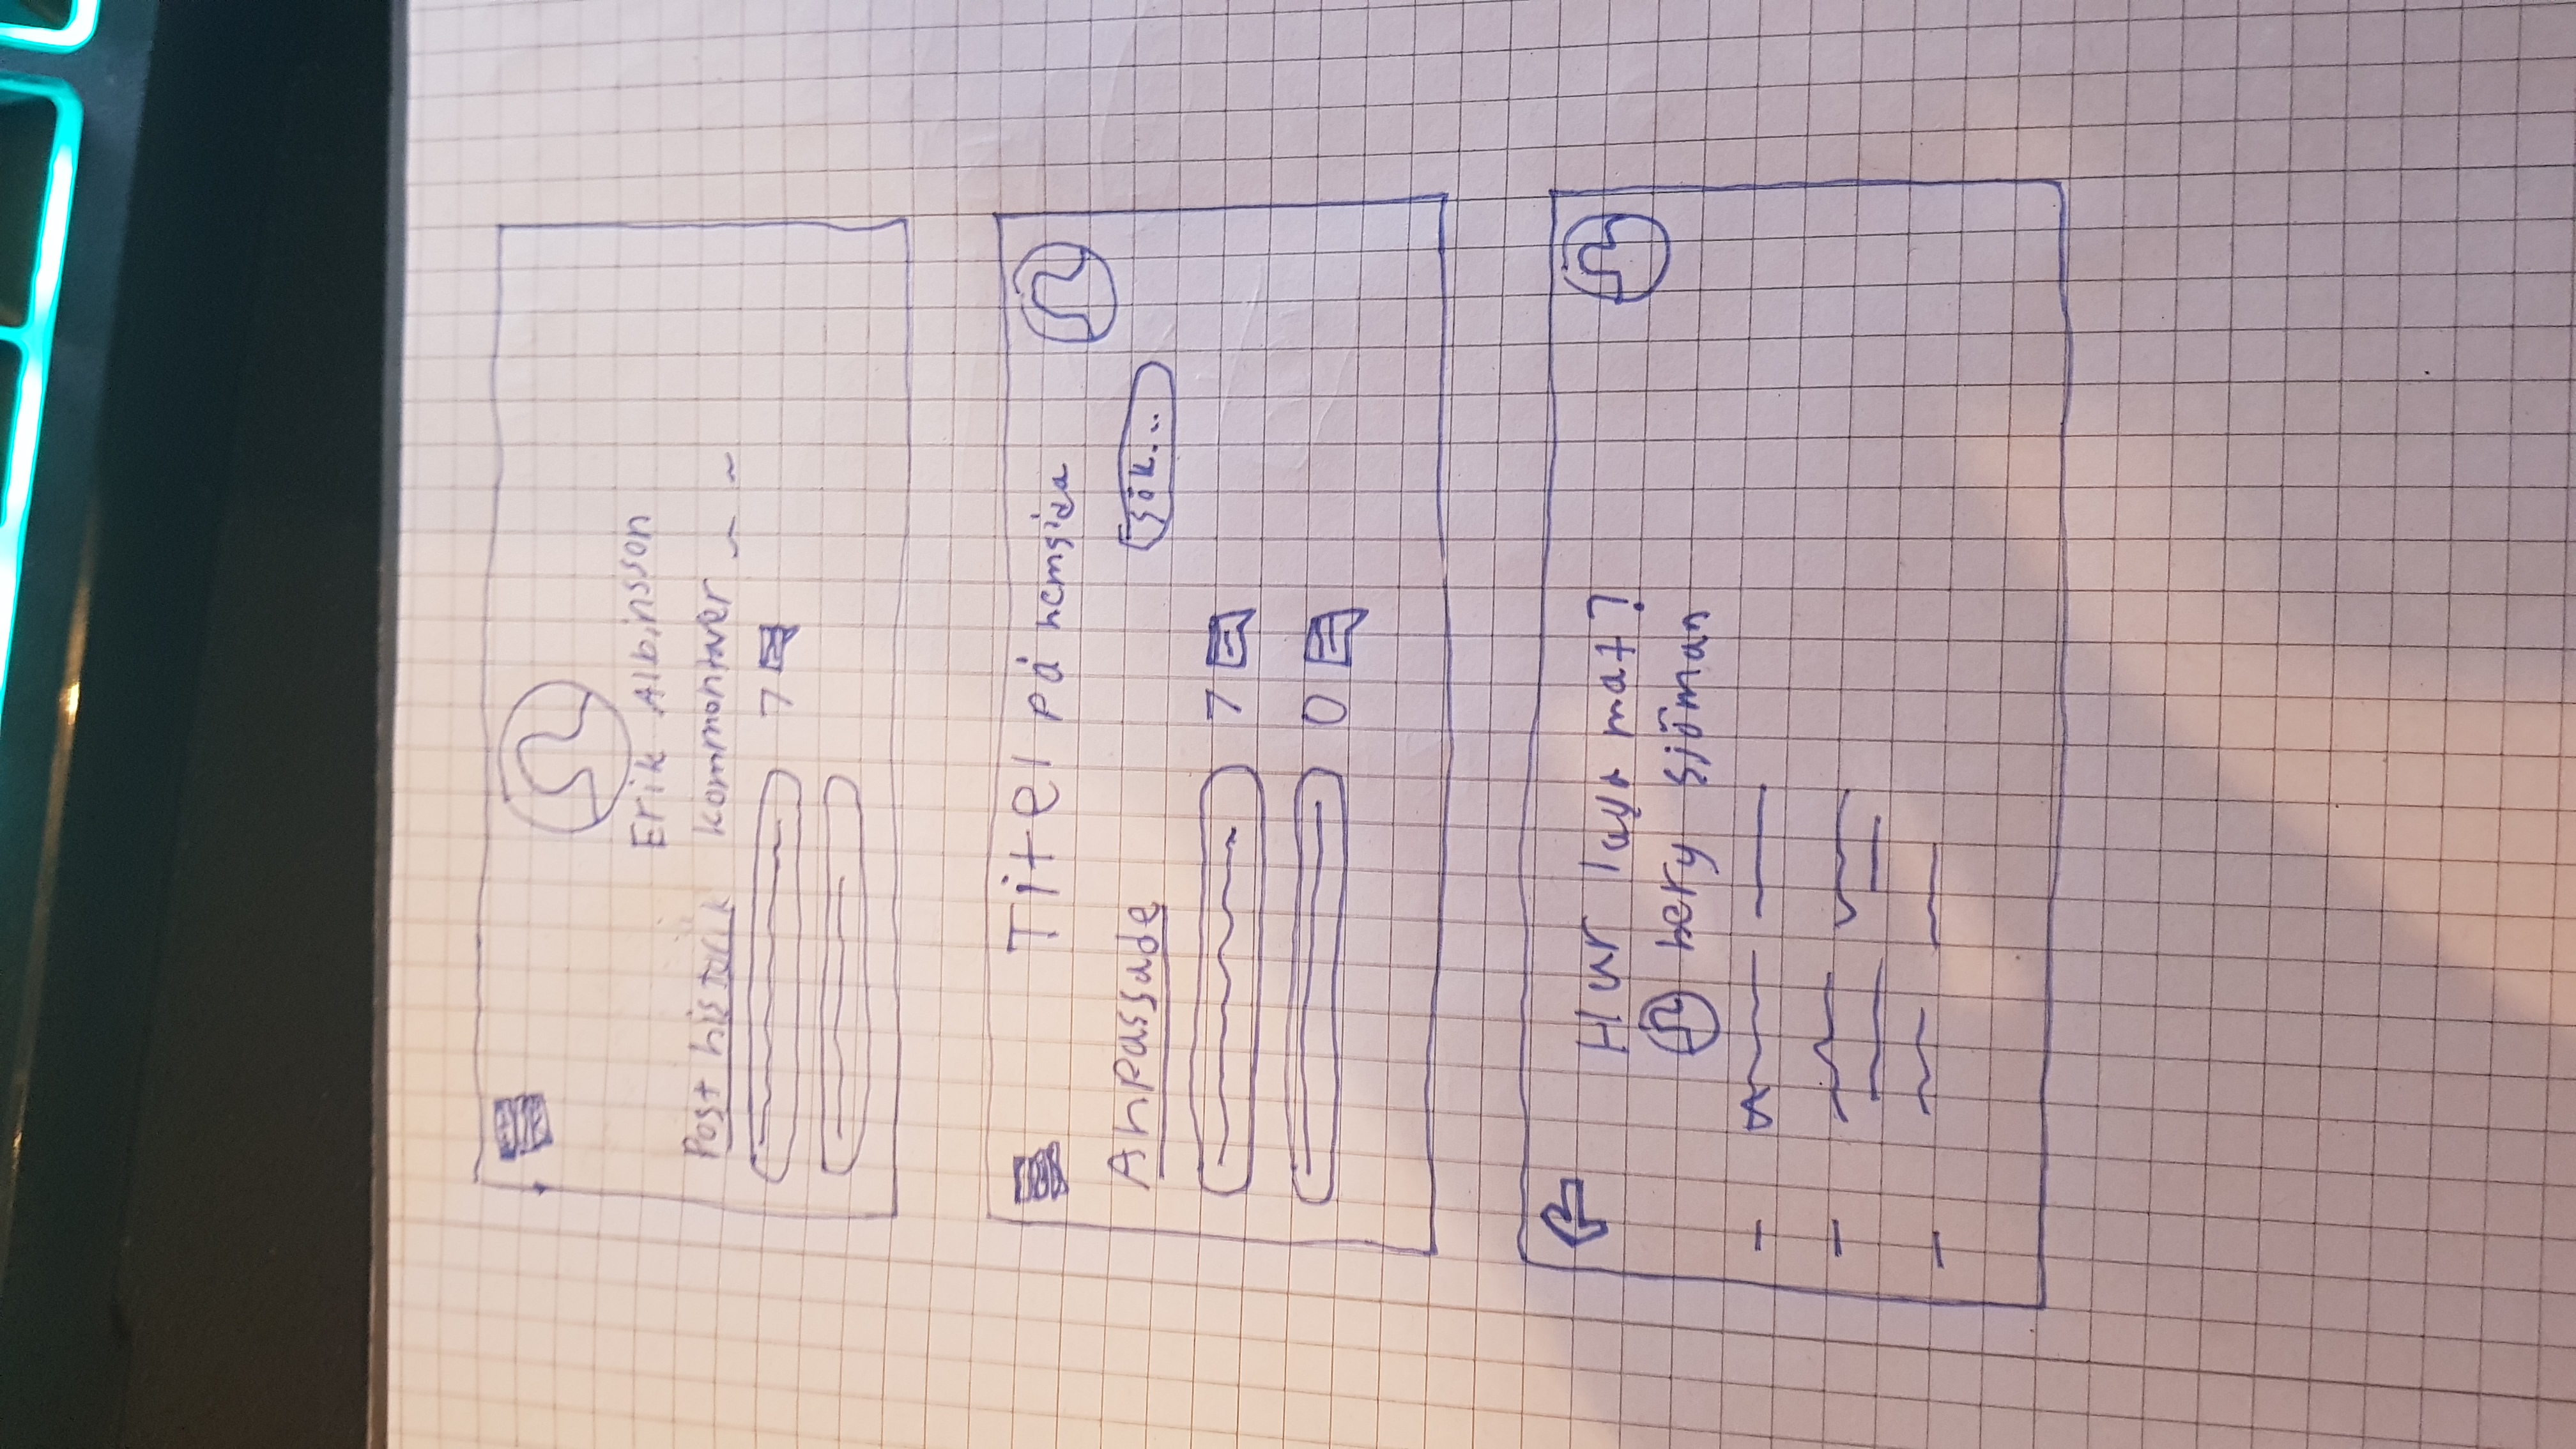 Erik Albinsson
Post historik kommontarer
7
Titel på hemsida
Anpassade
sök...
7
0
Hur laga mat?
berg sjöman